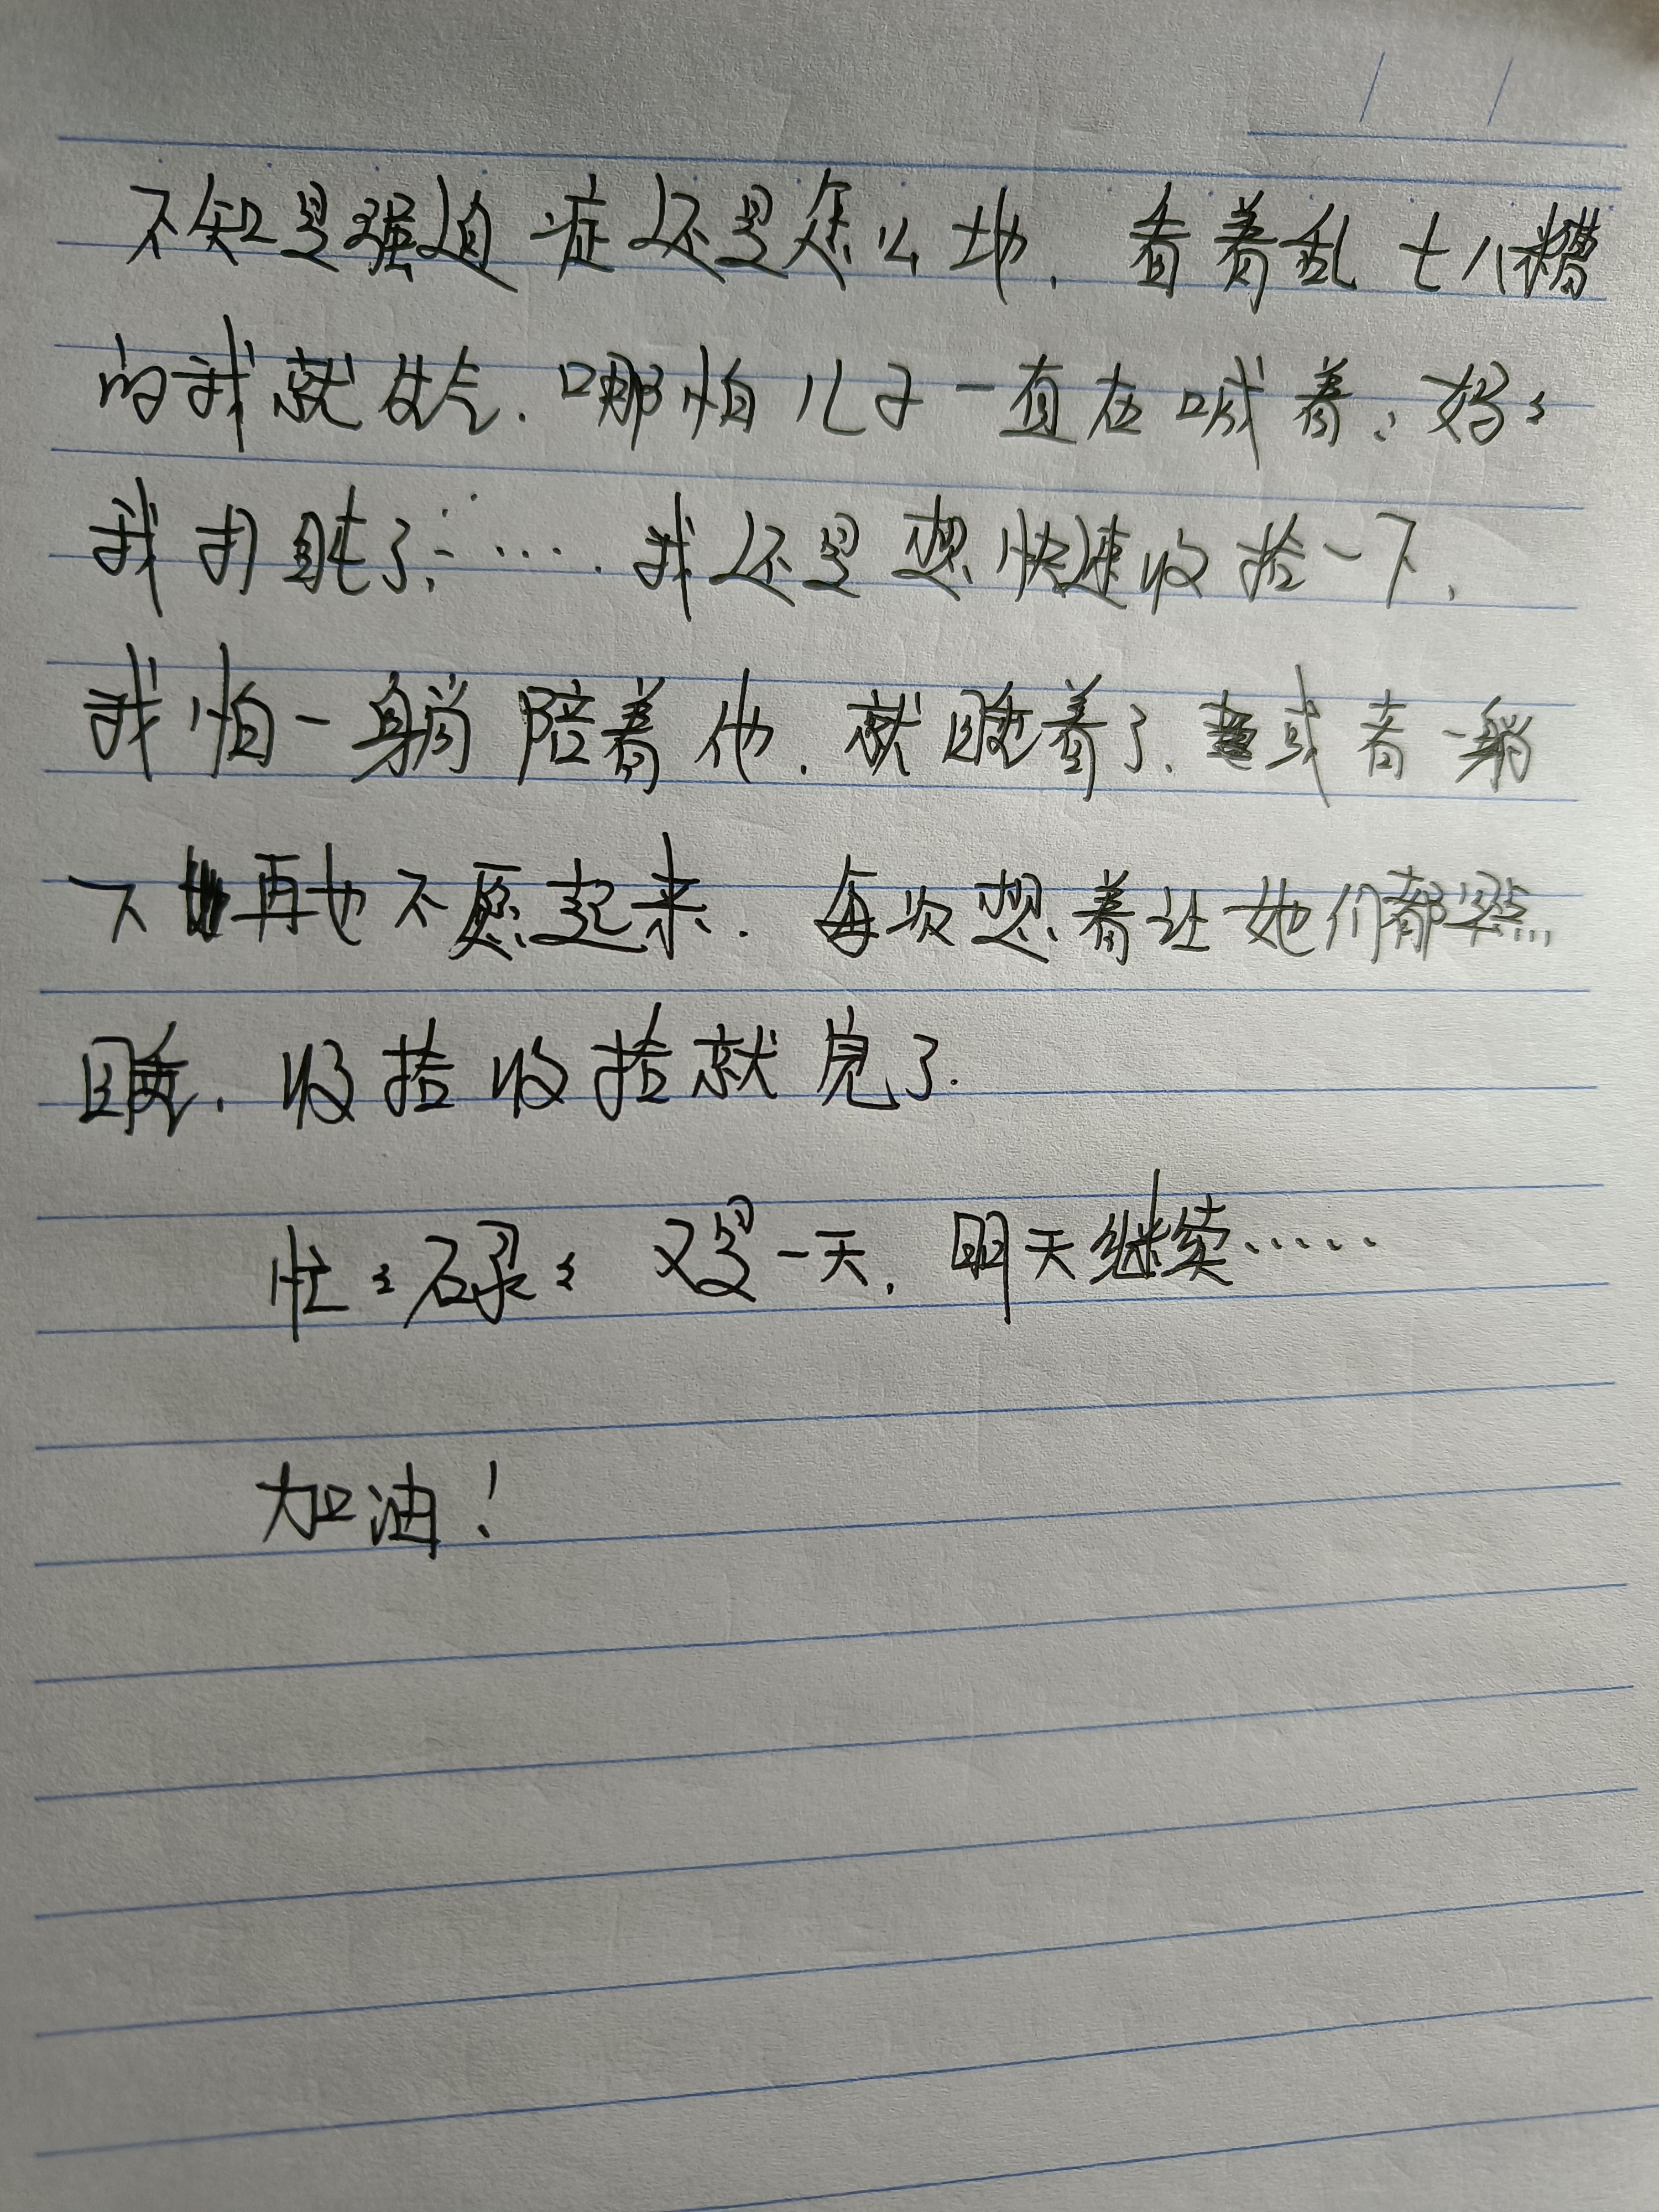 不知是强迫症还是怎么地，看着乱七八糟
的我就生气.哪怕儿子一直在喊着：妈〻
我打盹了：……我还是想快速收拾一下，
我怕一躺陪着他.就睡着了.或者一躺
下再也不愿起来.每次想着让她们都早点
睡.收拾收拾就完了.
忙〻碌〻又是一天，明天继续……
加油！